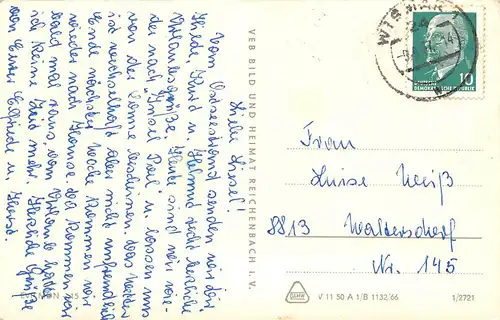 Liebe Liesel!
Vom Ostseestrand senden wir Dir,
Gerd u. Helmut recht herzliche
Urlaubsgrüße. Heute sind wir wie-
der nach "Insel Poel" u. lassen uns
von der Sonne bescheinen. Das Wetter
ist wechselhaft aber nicht unfreundlich.
Ende nächster Woche kommen wir
wieder nach Hause. Da kommen wir
bald mal raus, vom Urlaub habe
ich keine mehr. Herzliche Grüße
von Eurer Elfriede u. Horst.
VEB BILD UND HEIMAT REICHENBACH I. V.
WISMAR
10
DEMOKRATISCHE REPUBLIK
Frau
Luise Weiß
8813 Waltersdorf
Nr. 145
V 11 50 A 1/B 1132/66
1/2721